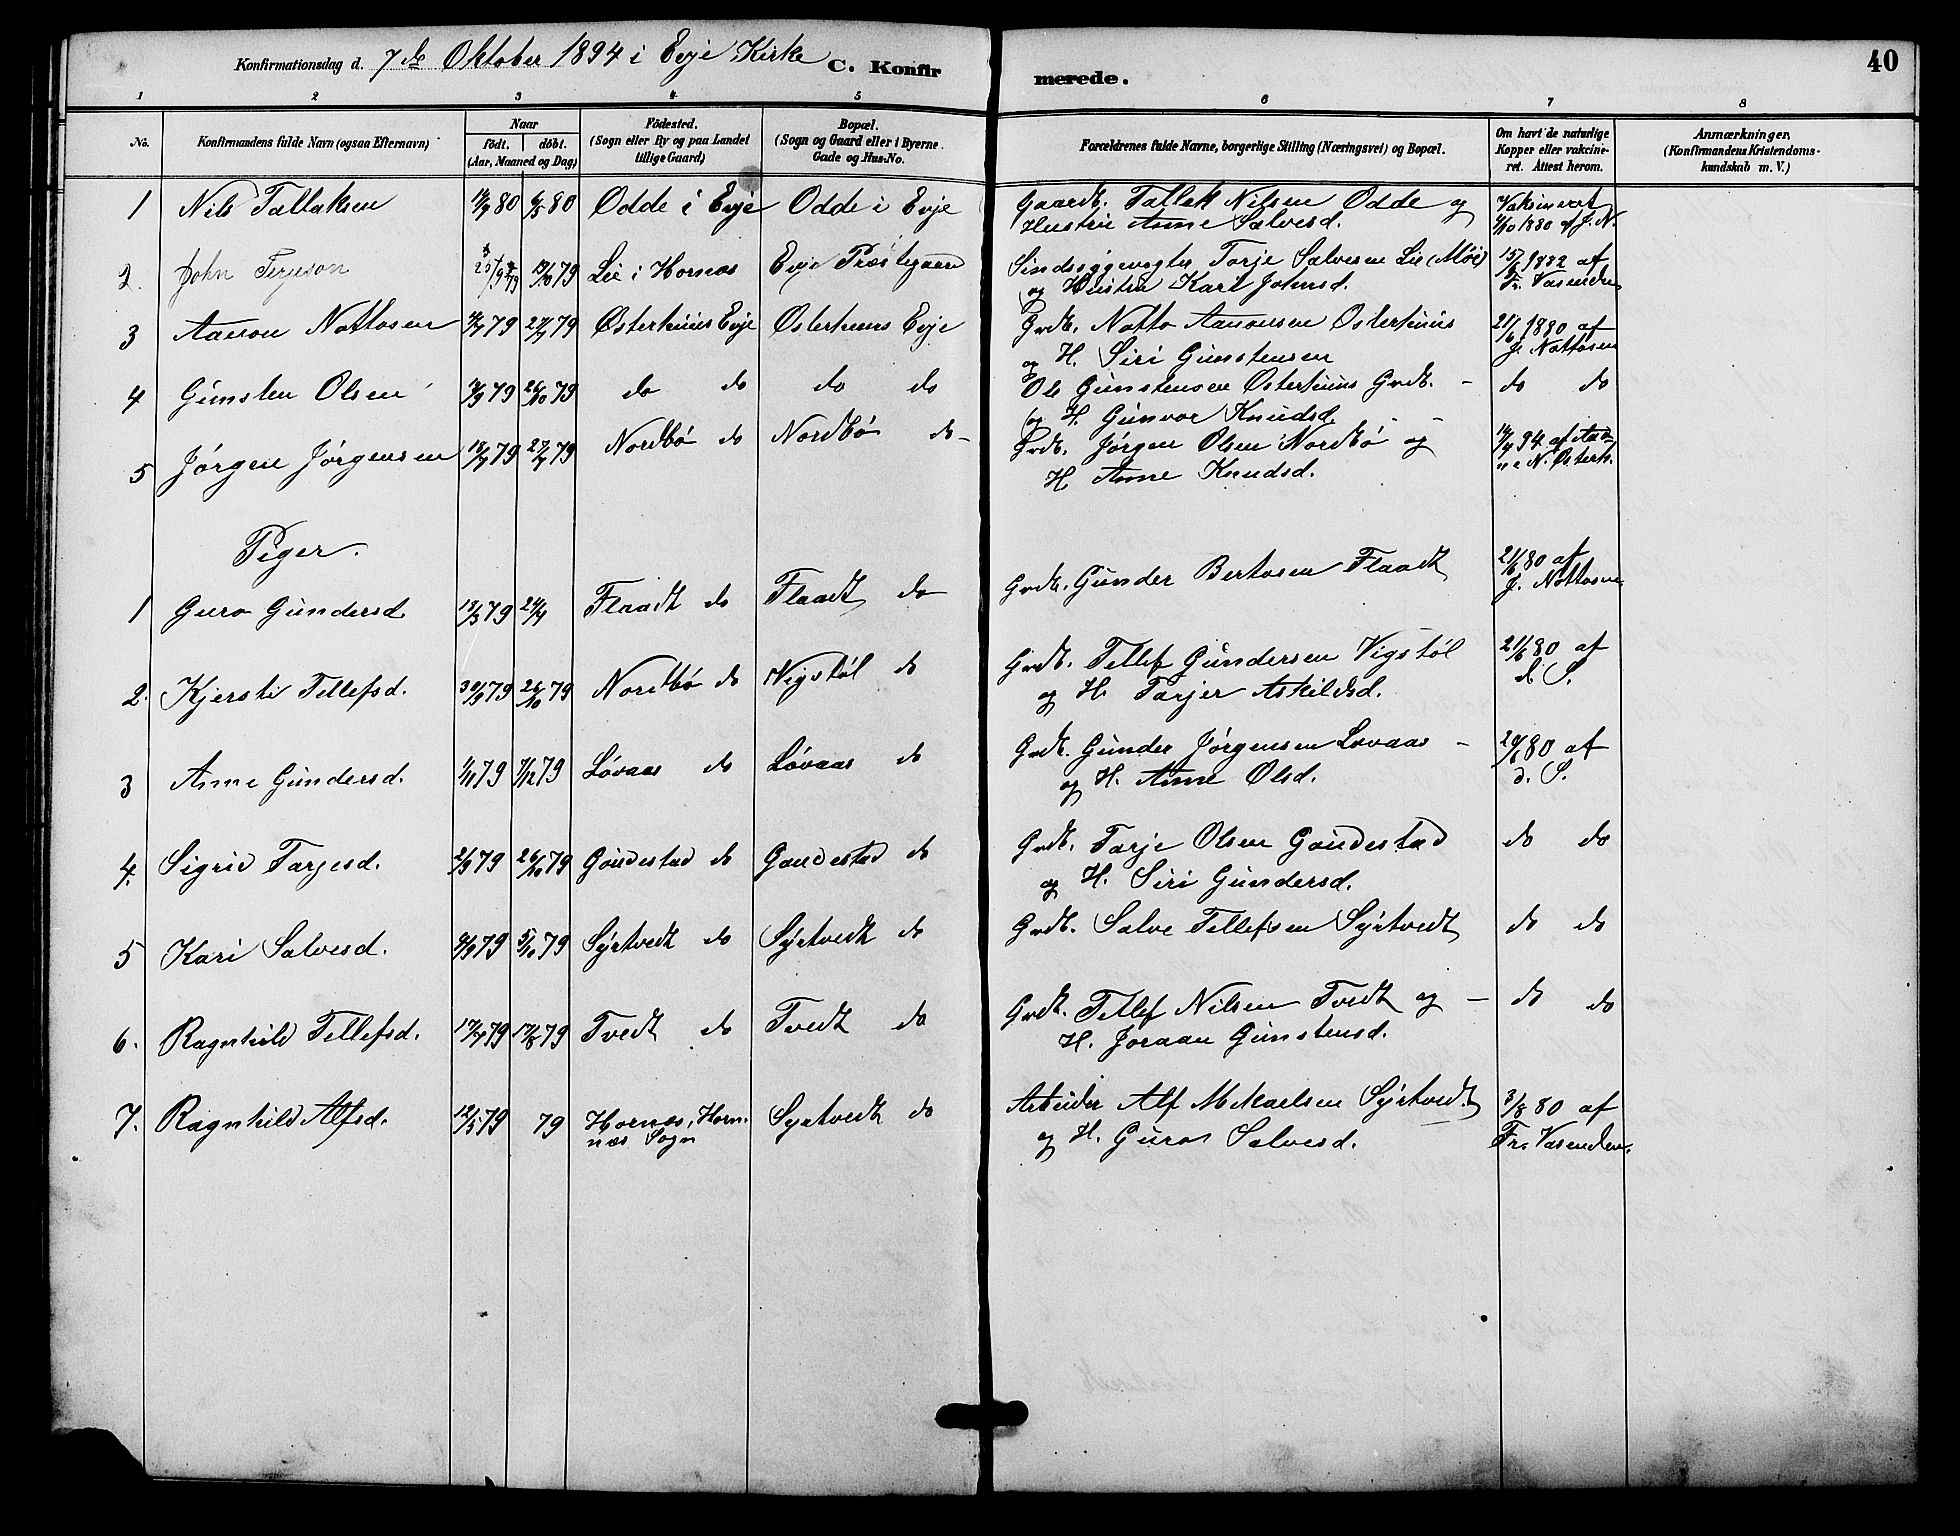 40
Konfirmationsdag d. 7de Oktober 1894 i Evje Kirke C. Konfirmerede.
1 2 3 4 5 6 7 8
No. Konfirmandens fulde Navn (ogsaa Efternavn) Naar födt. döbt. (Aar, Maaned og Dag) Födested. (Sogn eller By og paa Landet tillige Gaard) Bopæl. (Sogn og Gaard eller i Byerne Gade og Hus-No. Forældrenes fulde Navne, borgerlige Stilling (Næringsvei) og Bopæl. Om havt de naturlige Kopper eller vakcineret. Attest herom. Anmærkninger, (Konfirmandens Kristendomskundskab m. V.)
1 Nils Tallaksen 80 6/5 80 Odde i Evje Odde i Evje Gaardb. Tallak Nilsen Odde og Vaksineret
Hustru Anne Salvesd. 1880 af J. N.
2. John Terjeson 79 Lie i Hornæs Evje Præstegaard Sindssygevogter Torje Salvesen Lie (Moi) 1882 af
og Hustru Kari Johnsd. Fr. Vasenden
3 Aanon Nottosen 79 79 Østerhuus Evje Østerhuus Evje Grdb. Notto Aanonsen Osterhuus 21/6 1880 af
og H. Siri Gunstensen J. Nottosen
4 Gunsten Olsen 79 26/10 79 do do do do Ole Gunstensen Østerhuus Grdb. - do do
og H. Gunvor Knudsd. - -
5 Jørgen Jørgensen 79 79 Nordbö do Nordbö do- Grdb. Jørgen Olsen Nordbö og 94 af Aan-
H. Anne Knudsd. ne N. Østerh.
Piger.
1 Guro Gundersd. 79 Flaadt do Flaadt do Grdb. Gunder Bertosen Flaadt 21/6 80 af
J. Nottosen
2. Kjersti Tellefsd. 79 26/10 79 Nordbö do Vigstöl do Grdb. Tellef Gundersen Vigstöl 21/6 80 af
og H. Tarjer Askildsd. d. S.
3 Anne Gundersd. 79 7/12 79 Lövaas do Lövaas do Grdb. Gunder Jørgensen Lovaas - 80 af
og H. Anne Olsd. d. S.
4. Sigrid Tarjesd. 79 26/10 79 Gaudestad do Gaudestad do Grdb. Tarje Olsen Gaudestad do do
og H. Siri Gundersd.
5 Kari Salvesd. 79 5/10 79 Syrtvedt do Syrtvedt do Grdb. Salve Tellefsen Syrtvedt do do
6. Ragnhild Tellefsd. 79 17/8 79 Tvedt do Tvedt do Grdb. Tellef Nilsen Tvedt og - do do
H. Joraan Gunstensd.
7. Ragnhild Alfsd. 12/5 79 79 Hornæs, Horn- Syrtvedt do Arbeider Alf Mikaelsen Syrtvedt 3/8 80 af
næs Sogn og H. Guro Salvesd. Fr. Vasenden.